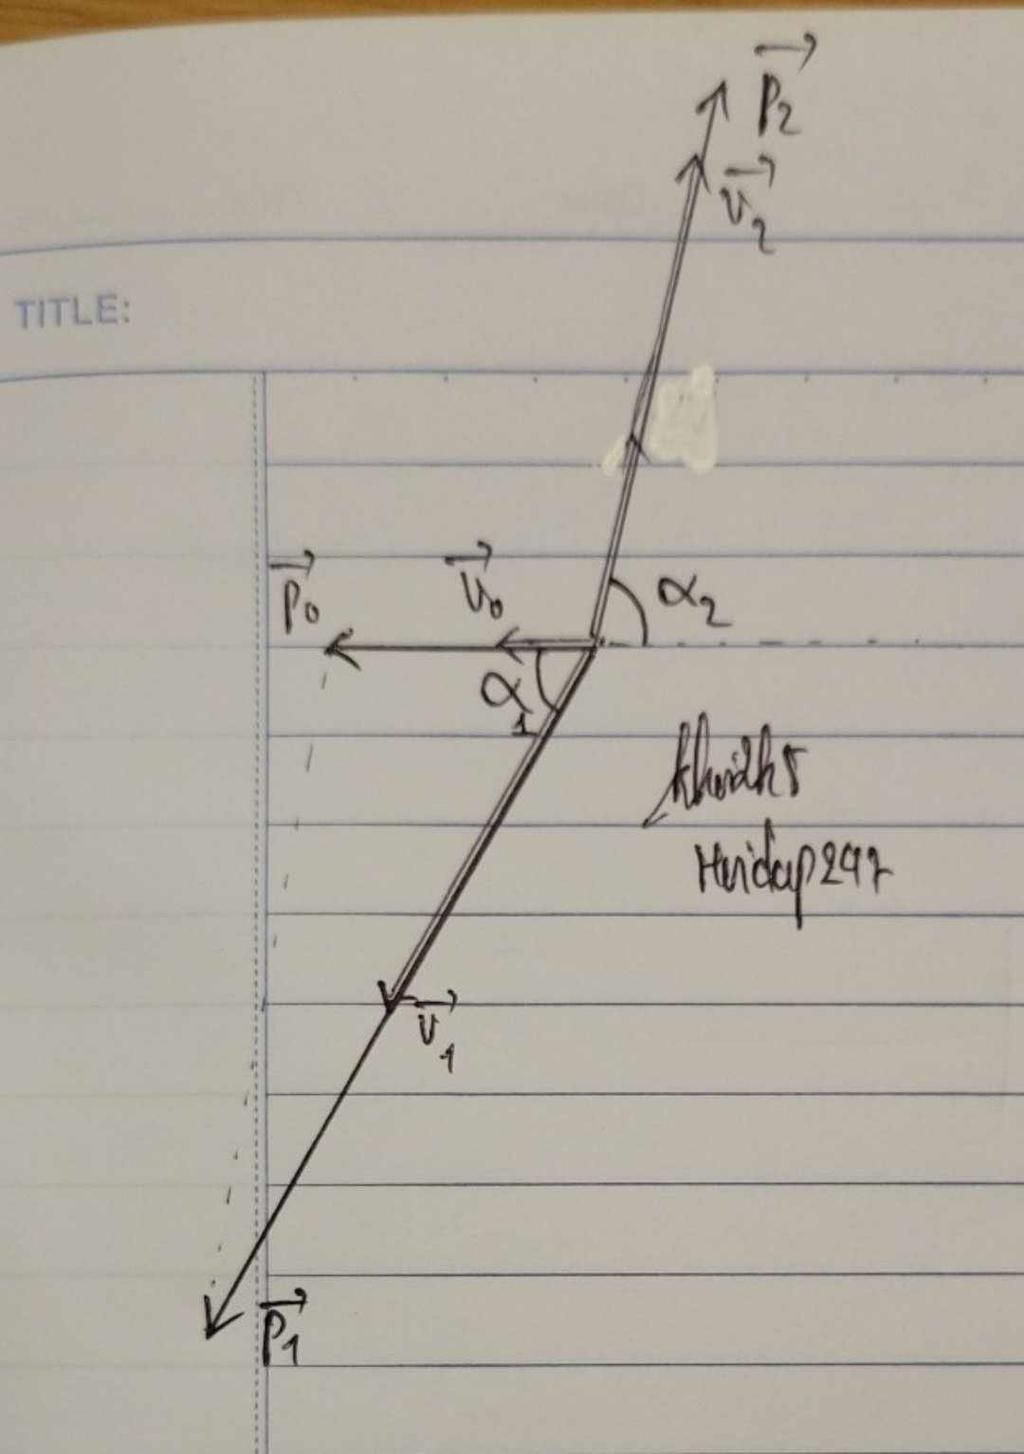 p₂
v₂
TITLE:
p₀
v₀
α₂
α₁
Hoidap247
v₁
p₁